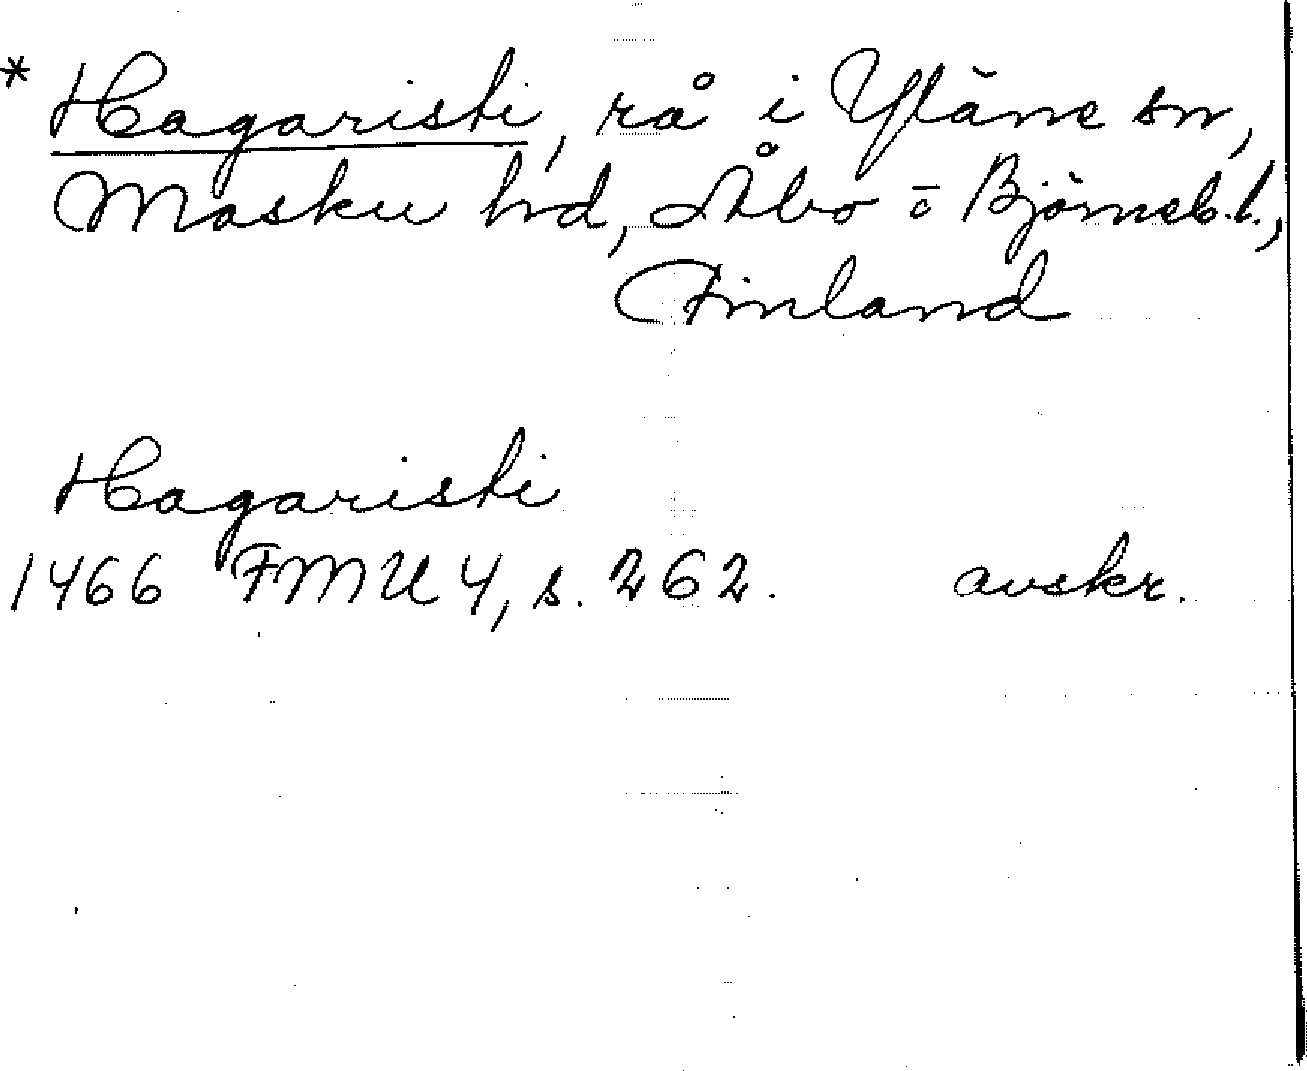 * Hagaristi, rå i Yläne sn,
Masku hd, Åbo o Björneb. l.,
Finland
Hagaristi
1466 FMU 4, s. 262. avskr.